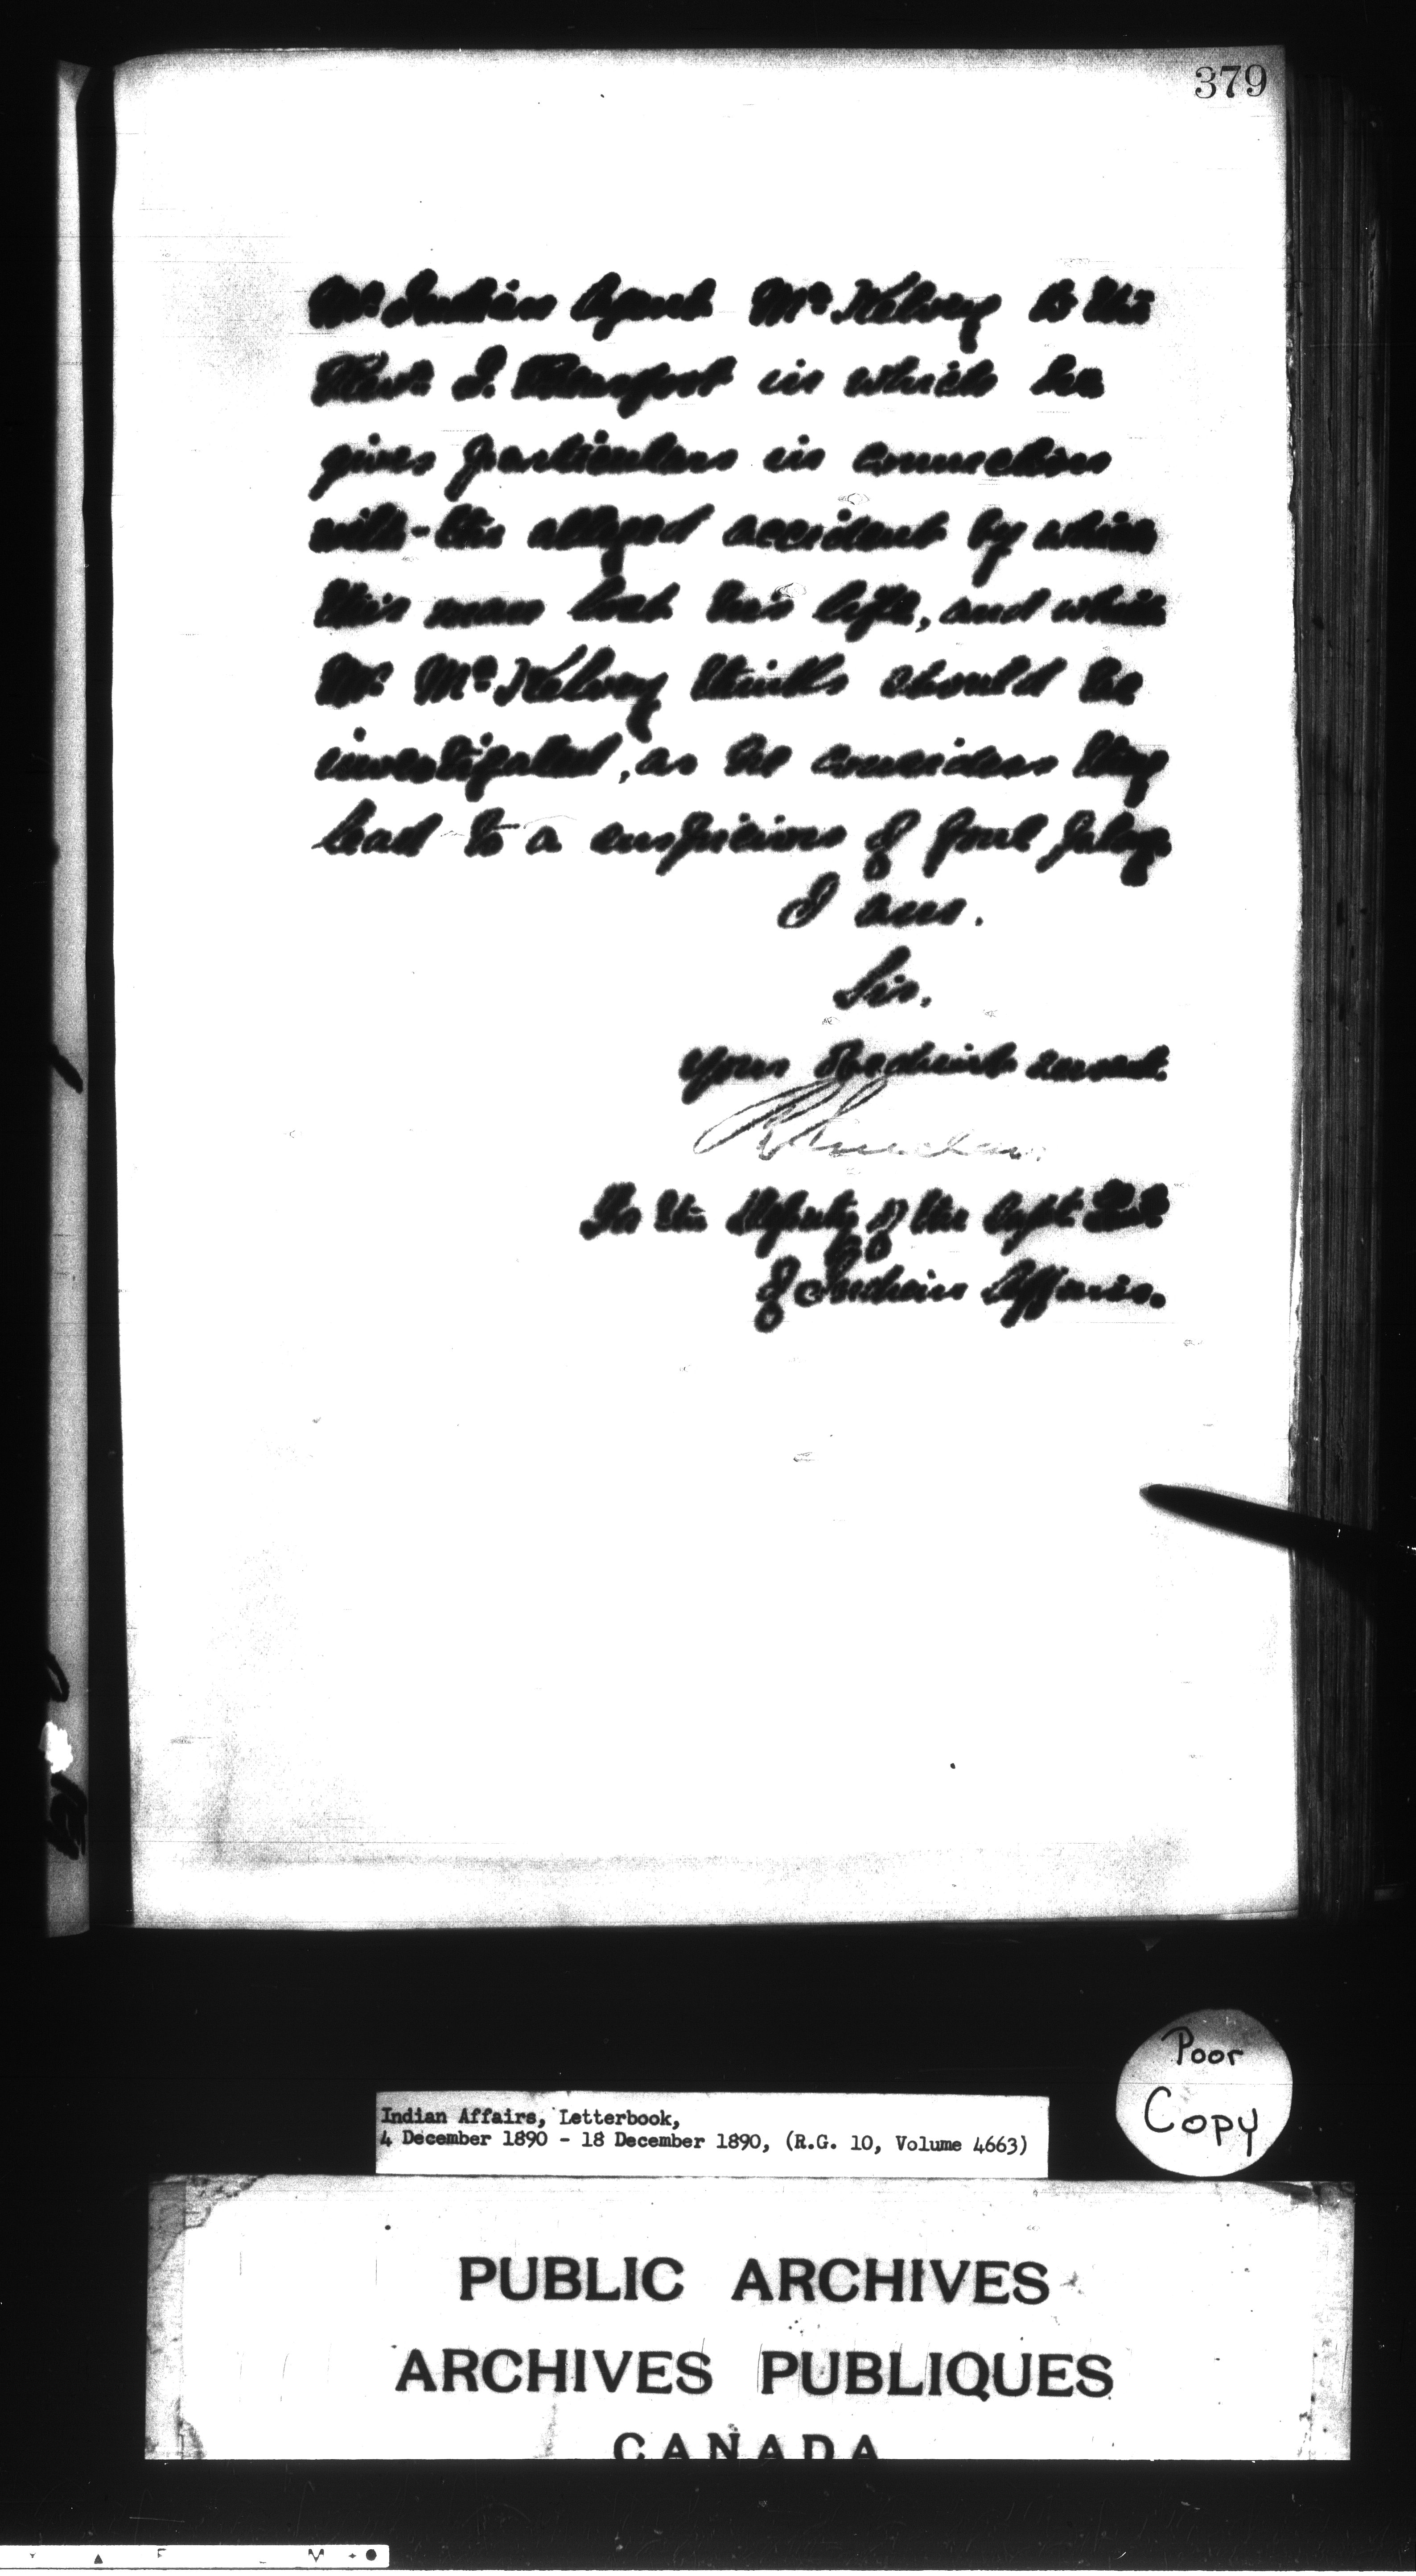 379
Mr Indian Agent McKelvey to the
Revd. J. in which he
gives particulars in connection
with the alleged accident by which
this man lost his life, and which
Mr McKelvey thinks should be
investigated, as he considers they
lead to a suspicion of foul play.
I am.
Sir,
Your obedient servant.
R Sinclair
For the Deputy of the Supt. Genl.
of Indian Affairs.
Poor
Copy
Indian Affairs, Letterbook,
4 December 1890 - 18 December 1890, (R.G. 10, Volume 4663)
PUBLIC ARCHIVES
ARCHIVES PUBLIQUES
CANADA